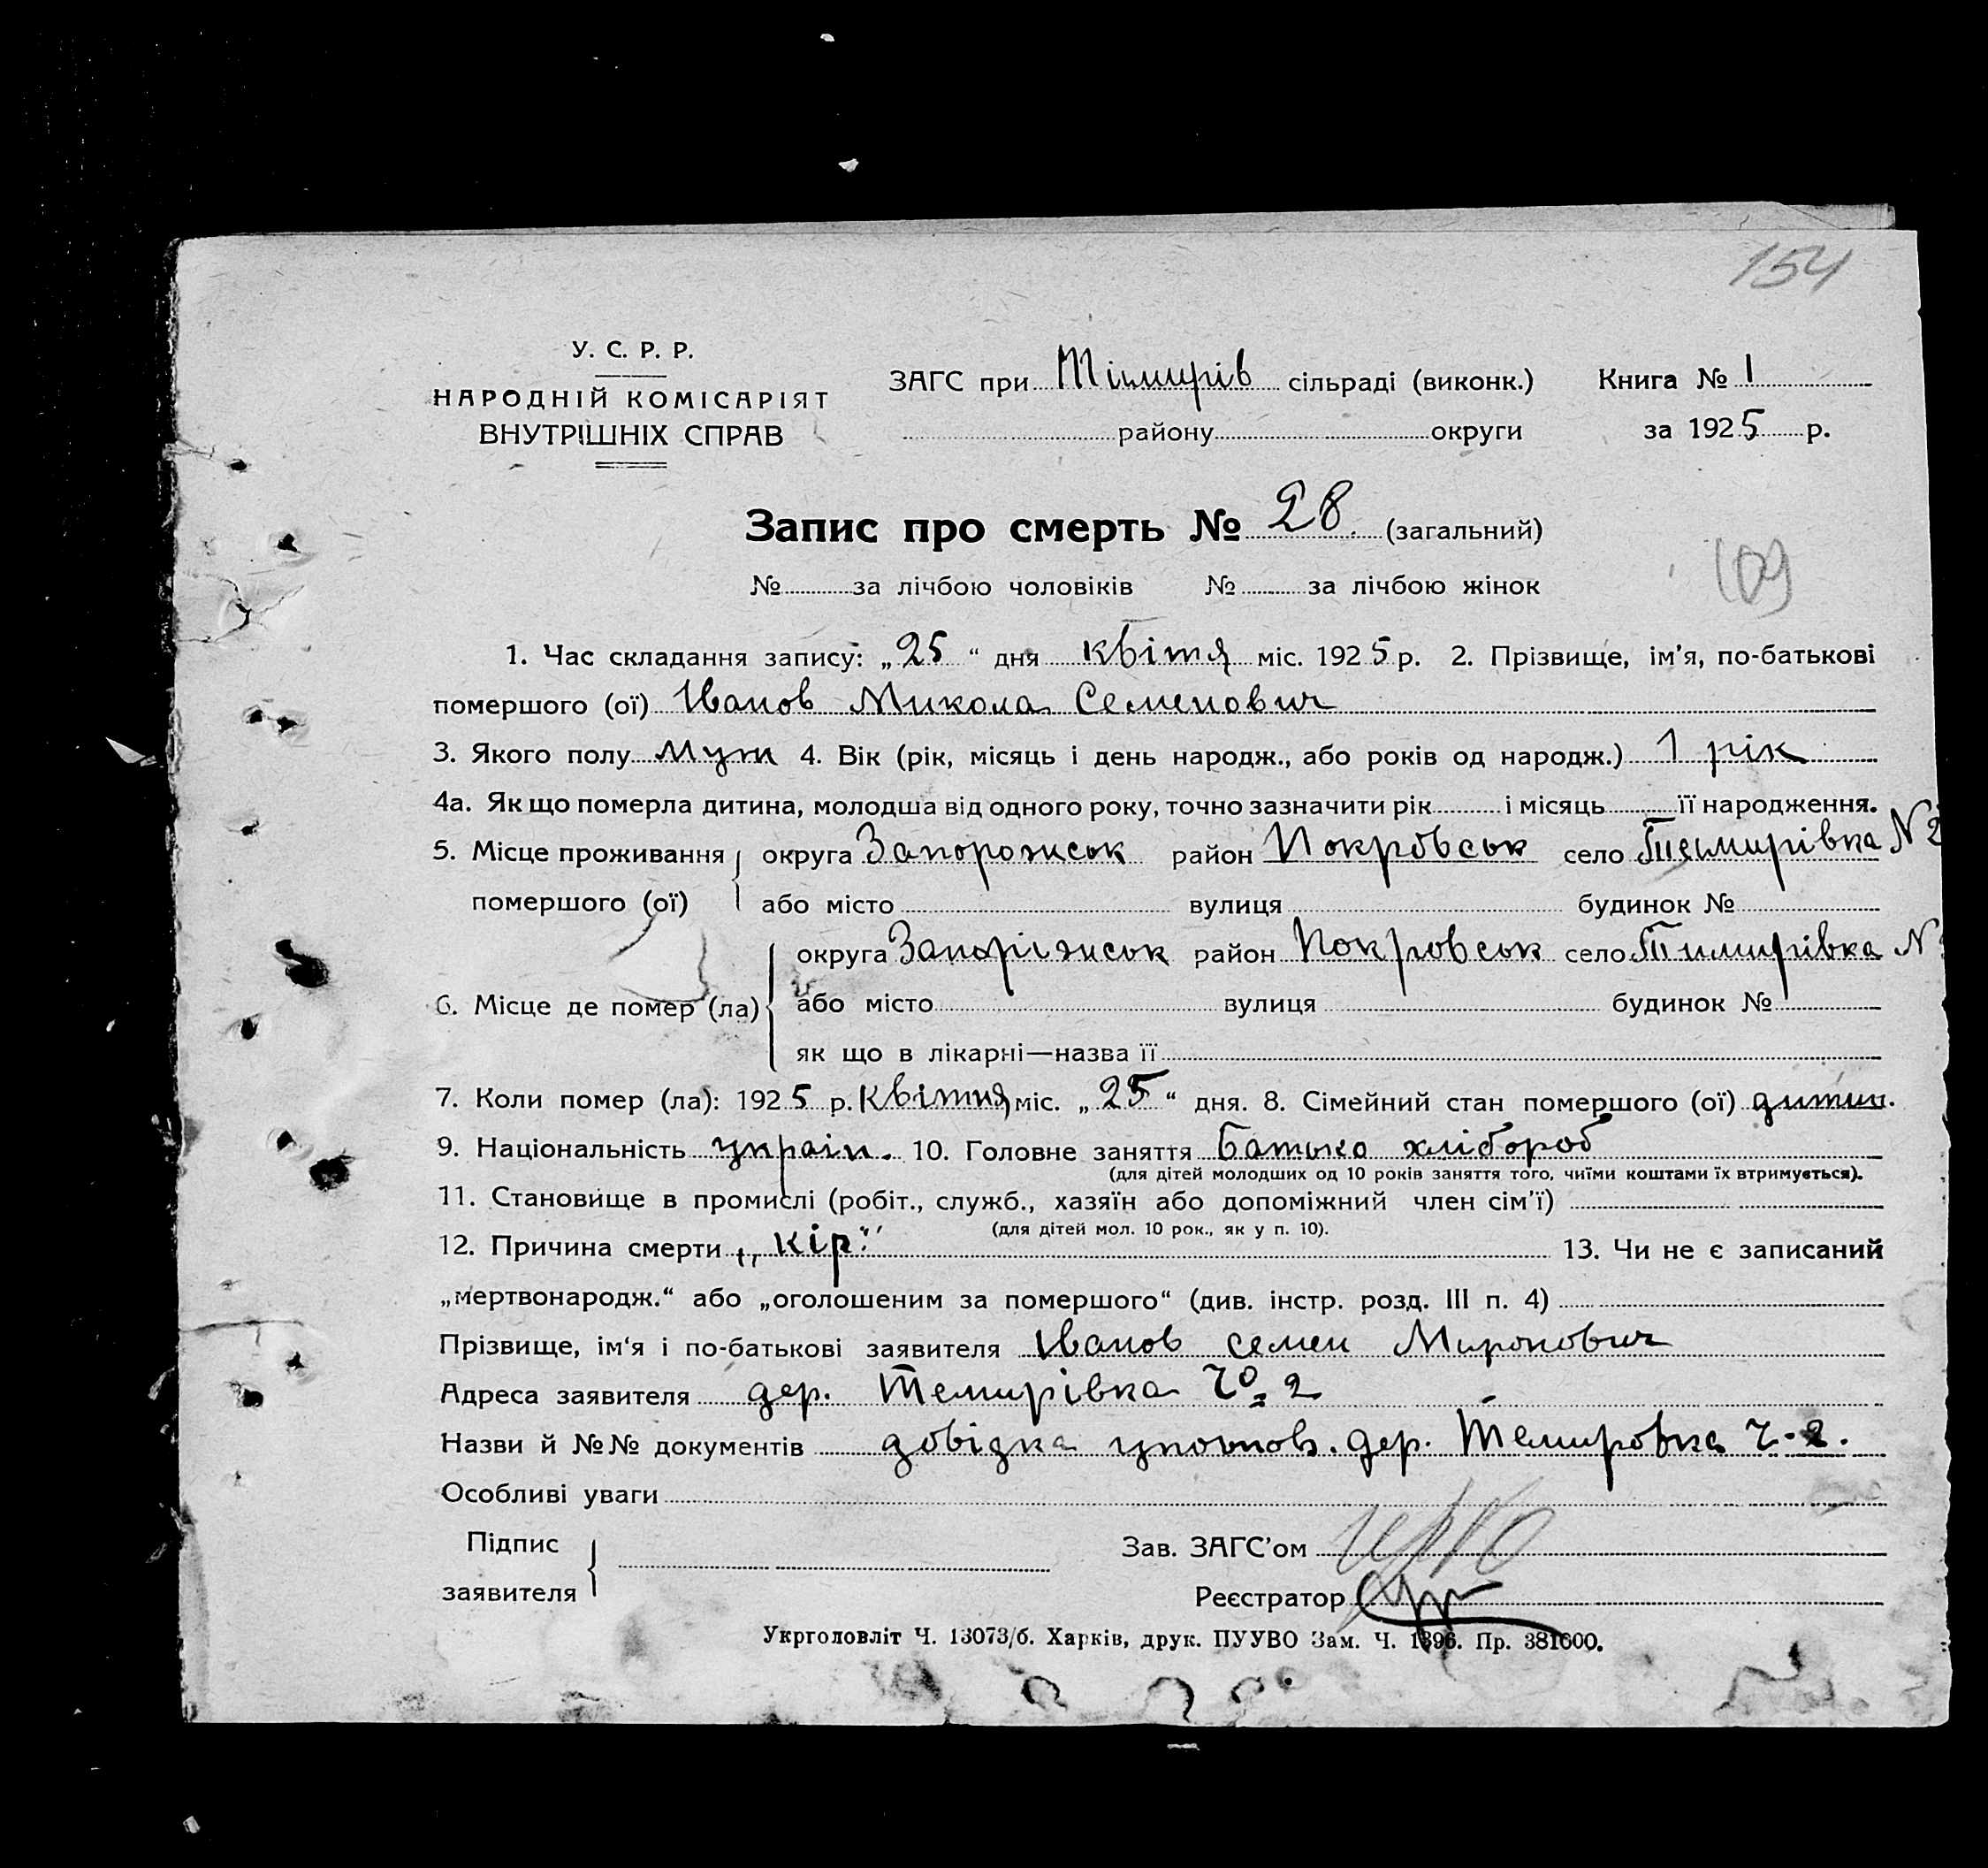 154
У. С. Р. Р.
НАРОДНІЙ КОМІСАРІЯТ
ВНУТРІШНІХ СПРАВ
ЗАГС при Тімирів сільраді (виконк.) Книга № 1
району округи за 1925 р.
Запис про смерть № 28. (загальний)
№ за лічбою чоловіків № за лічбою жінок
109
1. Час складання запису: „25“ дня квітя міс. 1925 р. 2. Прізвище, ім'я, по-батькові
помершого (ої) Іванов Микола Семенович
3. Якого полу муж 4. Вік (рік, місяць і день народж., або років од народж.) 1 рік
4а. Як що померла дитина, молодша від одного року, точно зазначити рік і місяць її народження.
5. Місце проживання помершого (ої) округа Запорожськ район Покровськ село Темирівка N 2
або місто вулиця будинок №
6. Місце де помер (ла) округа Запоріжськ район Покровськ село Тимирівка N
або місто вулиця будинок №
як що в лікарні—назва її
7. Коли помер (ла): 1925 р. квітня міс. „25“ дня. 8. Сімейний стан помершого (ої) дитин.
9. Національність україн. 10. Головне заняття Батько хлібороб
(для дітей молодших од 10 років заняття того, чиїми коштами їх втримується).
11. Становище в промислі (робіт., служб., хазяїн або допоміжний член сім'ї)
(для дітей мол. 10 рок., як у п. 10).
12. Причина смерти „кір“ 13. Чи не є записаний
„мертвонародж.“ або „оголошеним за помершого“ (див. інстр. розд. III п. 4)
Прізвище, ім'я і по-батькові заявителя Іванов Семен Миронович
Адреса заявителя дер. Темирівка Ч° 2
Назви й №№ документів довідка уповнов. дер. Темировка Ч-2.
Особливі уваги
Підпис заявителя
Зав. ЗАГС'ом
Реєстратор
Укрголовліт Ч. 13073/б. Харків, друк. ПУУВО Зам. Ч. 1396. Пр. 381600.